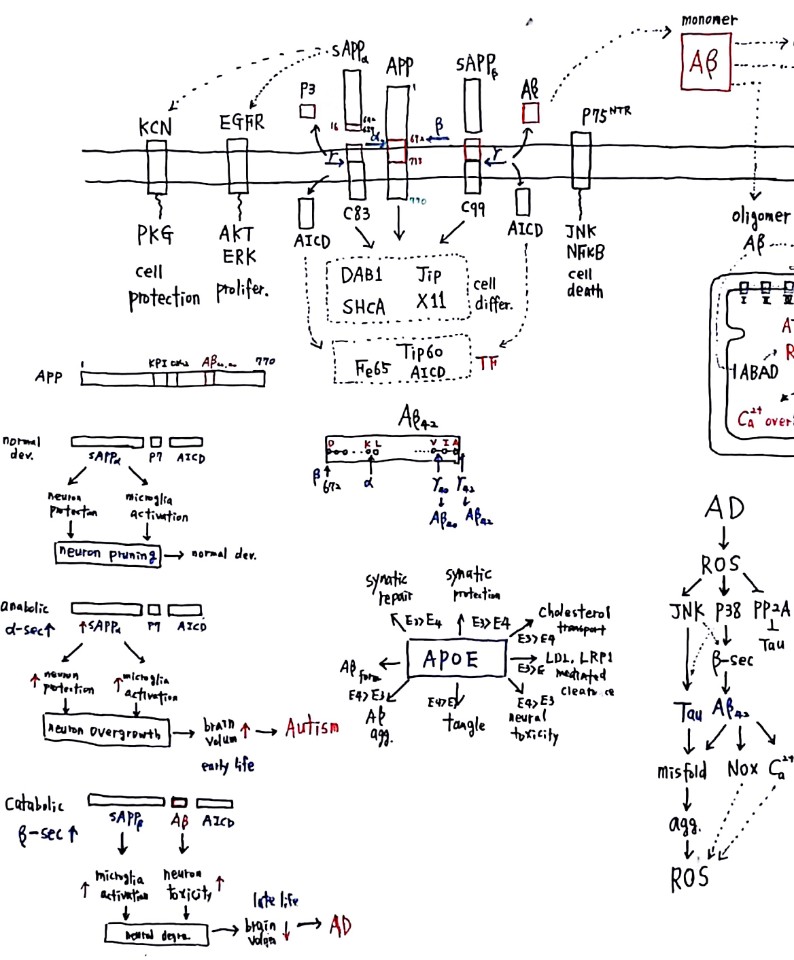 monomer
Aβ
sAPPα
APP
sAPPβ
Aβ
P3
1
P75ᴺᵀᴿ
KCN
EGFR
16
α
672
β
γ
713
γ
770
C83
C99
AICD
AICD
PKG
AKT
ERK
JNK
NFKB
cell
protection
prolifer.
cell
death
DAB1
Jip
SHCA
X11
cell
differ.
Tip60
Fe65
AICD
TF
oligomer
Aβ
I
II
III
ABAD
Ca²⁺ over
APP
1
KPI
Aβ
770
Aβ42
D
K L
V I A
β
672
α
γ40
γ42
Aβ40
Aβ42
normal
dev.
sAPPα
P7
AICD
neuron
protection
microglia
activation
neuron pruning
normal dev.
anabolic
α-sec↑
↑sAPPα
P7
AICD
↑ neuron
protection
↑ microglia
activation
neuron overgrowth
brain
volum
↑
Autism
early life
Catabolic
β-sec↑
sAPPβ
Aβ
AICD
↑ microglia
activation
neuron
toxicity ↑
neural degra.
late life
brain
volum
↓
AD
synatic
repair
synatic
protection
E3>E4
E3>E4
Cholesterol
transport
E3>E4
APOE
LDL, LRP1
mediated
clearance
E3>E
Aβ
form
E4>E3
Aβ
agg.
E4>E
tangle
E4>E3
neural
toxicity
AD
ROS
JNK
P38
PP2A
Tau
β-sec
Tau
Aβ42
misfold
Nox
Ca²⁺
agg.
ROS